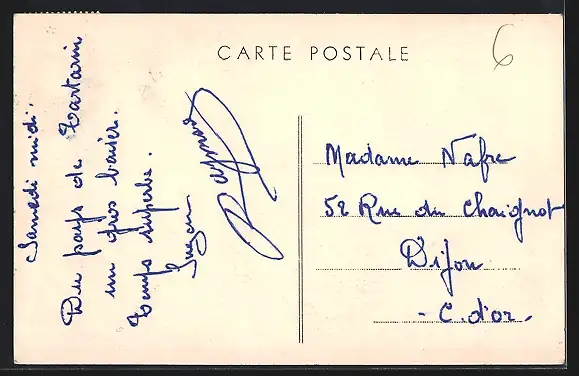 CARTE POSTALE
6
Samedi midi.
Du pays de Tartarin
un gros baiser.
Temps superbe.
Suzon
Raymond
Madame Nafre
52 Rue du Chaignot
Dijon
- C. d'or.